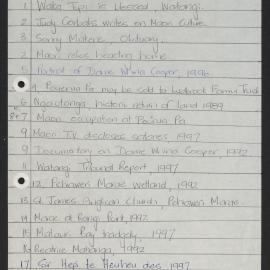 1 Waka Tipi is blessed, Waitangi.
2 Judy Corbalis writes on Maori Culture
3 Sonny Matene, Obituary
2 Maori relics heading home
5 Portrait of Dame Whina Cooper, 1996
4 Pouerua Pa may be sold to Ludbrook Family Trust
6 Ngaiotonga, historic return of land 1989
8+7 Maori occupation of Paihia Pa
9 Maori T.V. discloses salaries, 1997
9 Documentary on Dame Whina Cooper, 1992
11 Waitangi Tribunal Report, 1997
12 Petaewai Marae wetland, 1992
13 St. James Anglican Church, Marae
14 Marae at Rangi Point, 1992
15 Matauri Bay tragedy, 1997
16 Beatrice 1992
17 Sir Hepi te Heuheu dies 1997